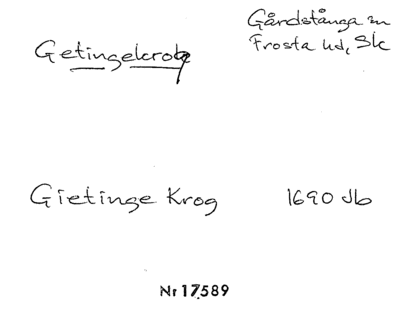 Getingekrog
Gårdstånga sn
Frosta hd, Sk
Gietinge Krog
1690 Jb
Nr 17589